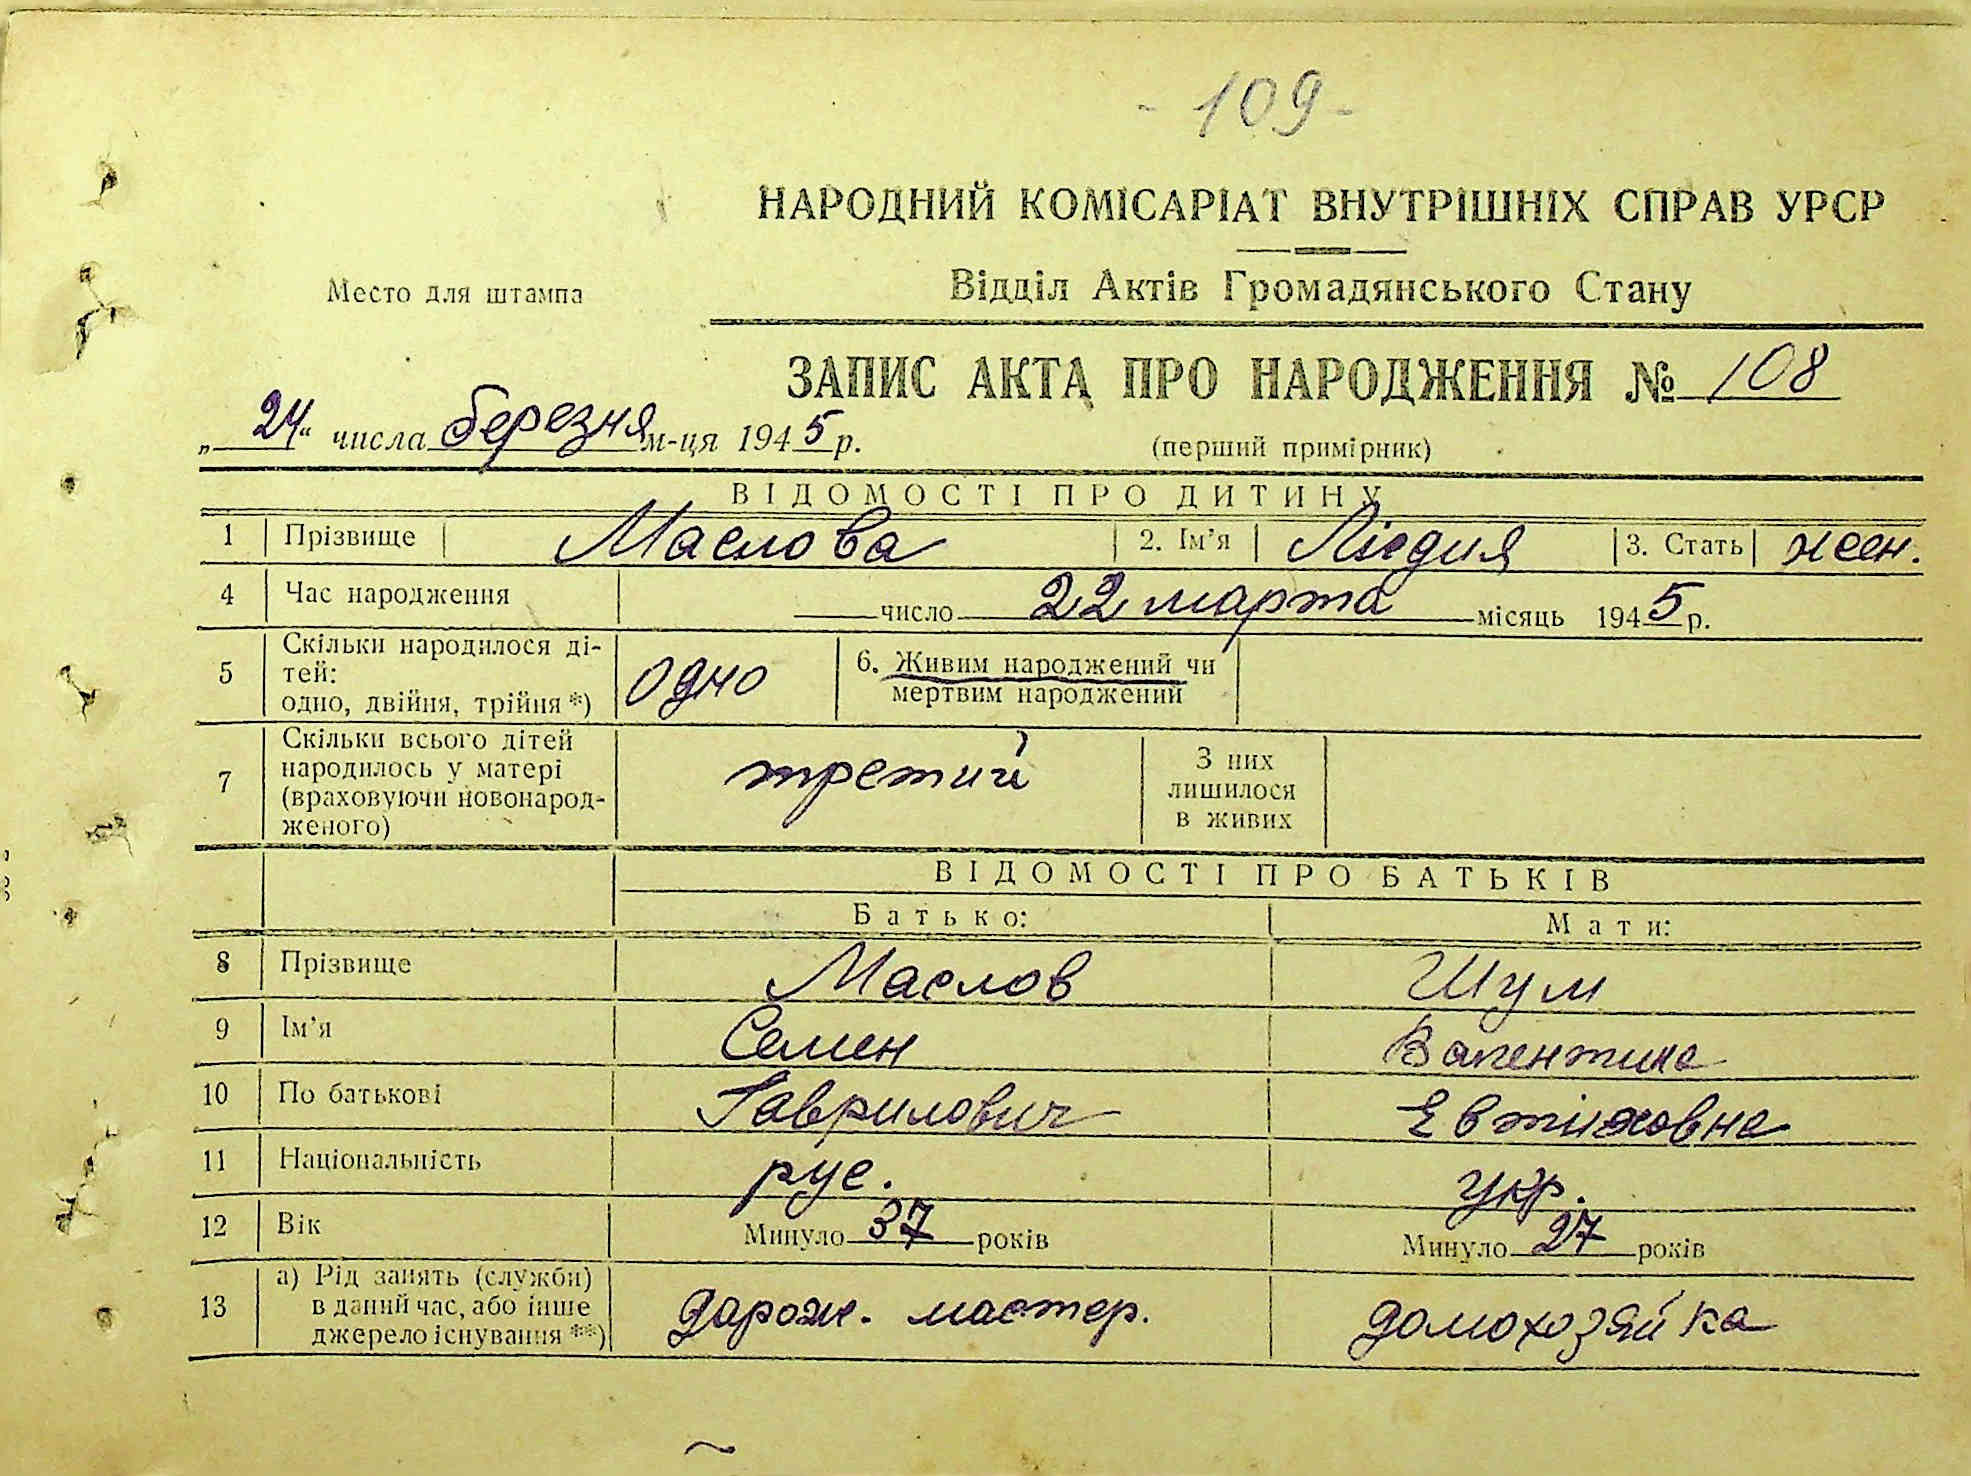 - 109 -
НАРОДНИЙ КОМІСАРІАТ ВНУТРІШНІХ СПРАВ УРСР
Место для штампа
Відділ Актів Громадянського Стану
ЗАПИС АКТА ПРО НАРОДЖЕННЯ № 108
„24“ числа березня м-ця 1945 р.
(перший примірник)
ВІДОМОСТІ ПРО ДИТИНУ
1 Прізвище Маслова 2. Ім’я Лідия 3. Стать жен.
4 Час народження число 22 марта місяць 1945 р.
5 Скільки народилося ді-
тей:
одно, двійня, трійня *) одно 6. Живим народжений чи
мертвим народжений
7 Скільки всього дітей
народилось у матері
(враховуючи новонарод-
женого) третий З них
лишилося
в живих
ВІДОМОСТІ ПРО БАТЬКІВ
Батько: Мати:
8 Прізвище Маслов Шум
9 Ім’я Семен Валентина
10 По батькові Гаврилович Евтиховна
11 Національність рус. укр.
12 Вік Минуло 37 років Минуло 27 років
13 а) Рід занять (служби)
в даний час, або інше
джерело існування **) дорож. мастер. домохозяйка